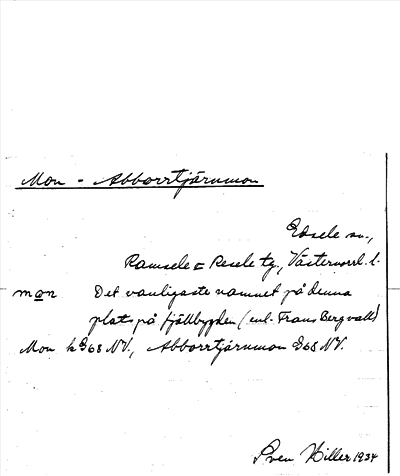 Mon - Abborrtjärnmon
Edsele sn.,
Ramsele o Resele tg., Västernorrl. l.
mon Det vanligaste namnet på denna
plats på fjällbygden (enl. Frans Bergvall)
Mon k 968 NV., Abborrtjärnmon 968 NV.
Sven Hiller 1934